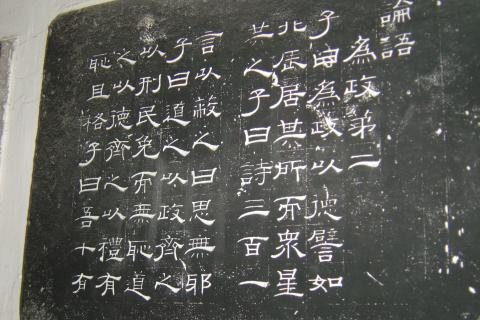 論語
為政第二
子曰為政以德譬如
北辰居其所而眾星
共之子曰詩三百一
言以蔽之曰思無耶
子曰道之以政齊之
以刑民免而無恥道
之以德齊之以禮有
恥且格子曰吾十有